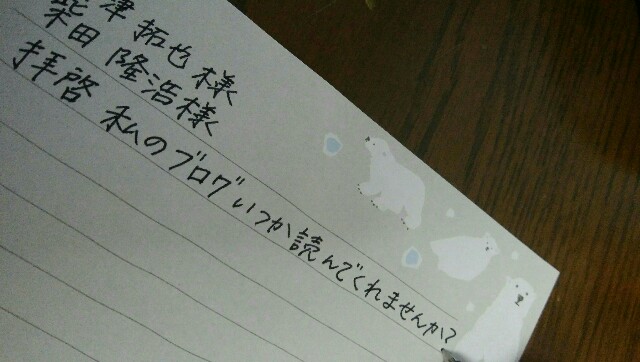 津 拓也 様
柴田 隆浩様
拝啓 私のブログいつか読んでくれませんか?